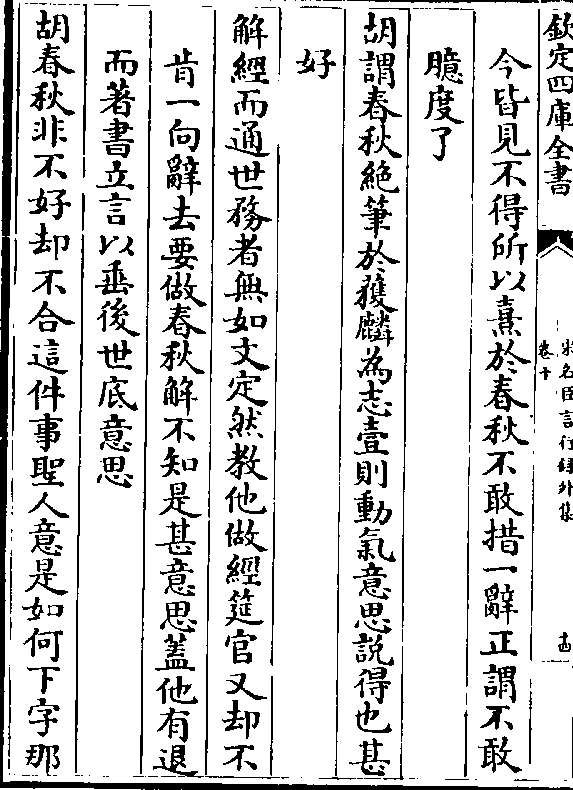 欽定四庫全書
宋名臣言行録外集
卷十
十四
今皆見不得所以熹於春秋不敢措一辭正謂不敢
臆度了
胡謂春秋絶筆於獲麟為志壹則動氣意思説得也甚
好
解經而通世務者無如文定然教他做經筵官又却不
肯一向辭去要做春秋解不知是甚意思蓋他有退
而著書立言以垂後世底意思
胡春秋非不好却不合這件事聖人意是如何下字那